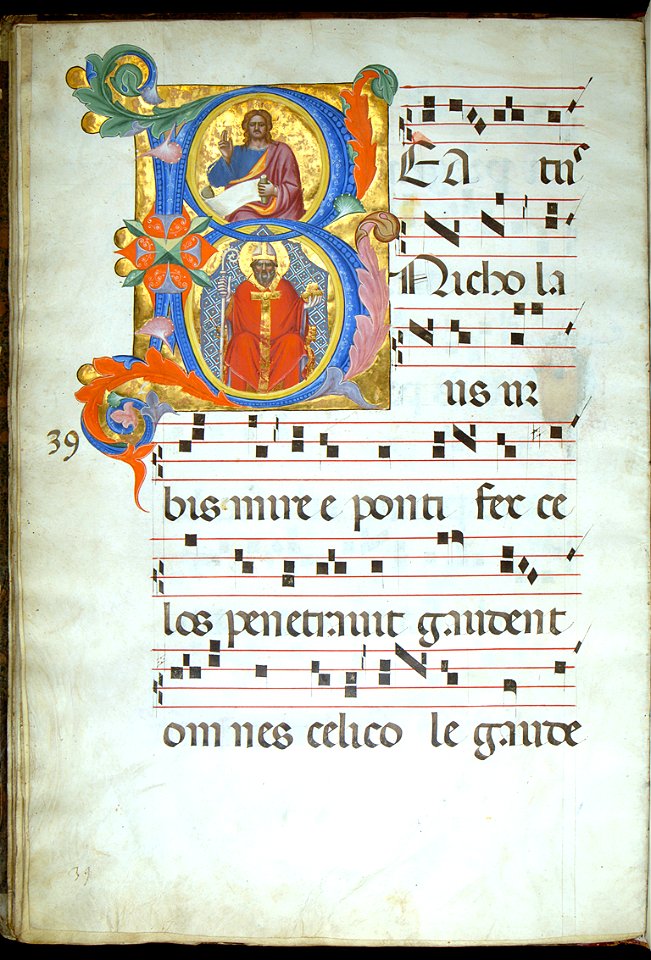 BEA tus
Nicho la
us ur
39
bis mire e ponti fex ce
los penetravit gaudent
om nes celico le gaude
39